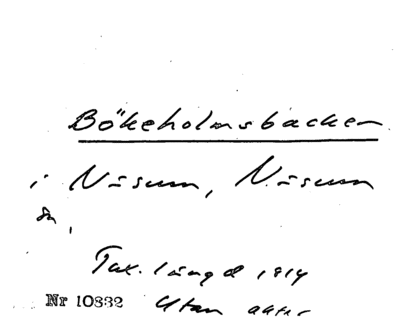 Bökeholmsbacken
i Näsum, Näsum
sn,
Tax. längd 1914
Nr 10832 Utan akter